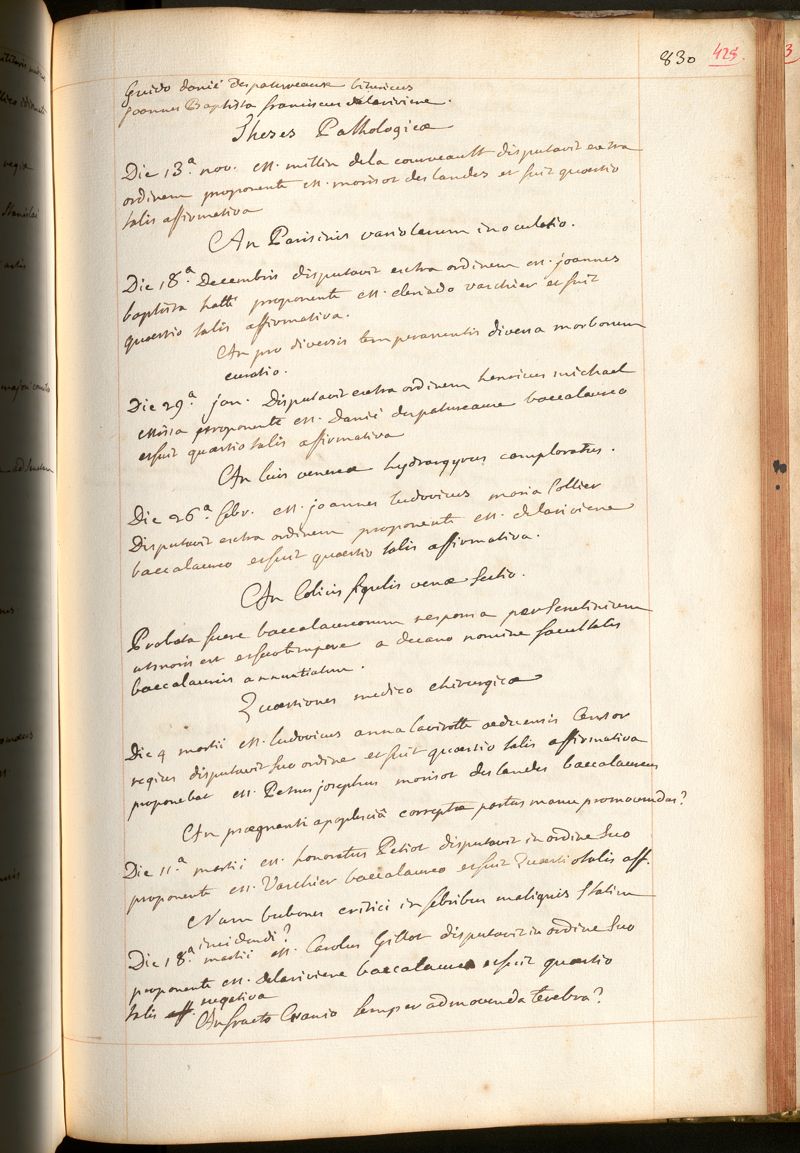 830 428.
Guido danié despatureaux bituricus
Joannes Baptista franciscus delariviere.
Theses Pathologicæ
Die 13.a nov. M. millin dela courveault disputavit extra
ordinem proponente M. morisot deslandes et fuit quæstio
talis affirmativa
An Parisinis variolarum inoculatio.
Die 18.a Decembris disputavit extra ordinem M. joannes
baptista hatté proponente M. deriado varchier et fuit
quæstio talis affirmativa.
An pro diversis temperamentis diversa morborum
curatio.
Die 29.a jan. Disputavit extra ordinem henricus michael
missa proponente M. Danié despatureaux baccalaureo
et fuit quæstio talis affirmativa
An luis venereæ hydrargyrus
Die 26.a febr. M. joannes ludovicus maria Sollier
Disputavit extra ordinem proponente M. delariviere
baccalaureo et fuit quæstio talis affirmativa.
An Colicis figulis venæ Sectio.
Probata fuere baccalaureorum responsa per Scrutinium
ut moris est et suo tempore a decano nomine facultatis
baccalaureis annuntiatum.
Quæstiones medico chirurgicæ
Die 4 martii M. ludovicus anna lavirotte æduensis Censor
regius disputavit suo ordine et fuit quæstio talis affirmativa
proponebat M. Petrus josephus morisot deslandes baccalaureus
An prægnanti apoplexiâ correptæ partus manu promovendus?
Die 11.a martii M. honoratus Petiot disputavit in ordine Suo
proponente M. Varchier baccalaureo et fuit quæstio talis aff.
Num bubones critici in febribus malignis Statim
incidendi?
Die 18.a martii M. Carolus Gillot disputavit in ordine Suo
proponente M. delariviere baccalaureo et fuit quæstio
talis aff. negativa
An fracto Cranio Semper admovenda terebra?